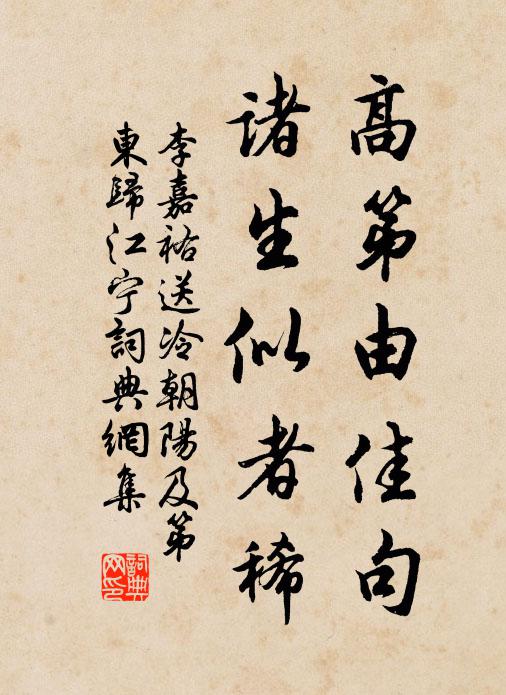 高第由佳句
诸生似者稀
李嘉祐送冷朝陽及第
東歸江宁詞典網集
詞典
网印